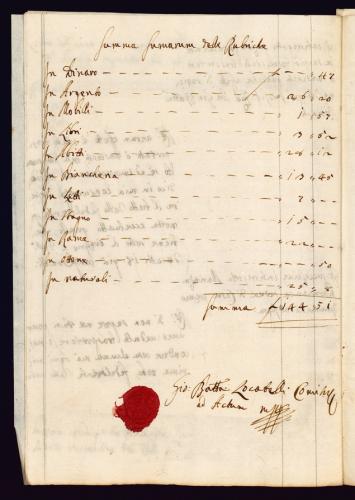 Summa Sumarum delle Rubriche
In Dinaro 42
In Argento 26 20
In Mobili 1 57
In Libri 3 62
In Abitti 26 12
In Biancheria 13 45
In Letti
In Stagno 15
In Rame 22
In 50
In naturali 25
Summa f 144 51
Gio: Batta Locatelli
ad Actum mpp